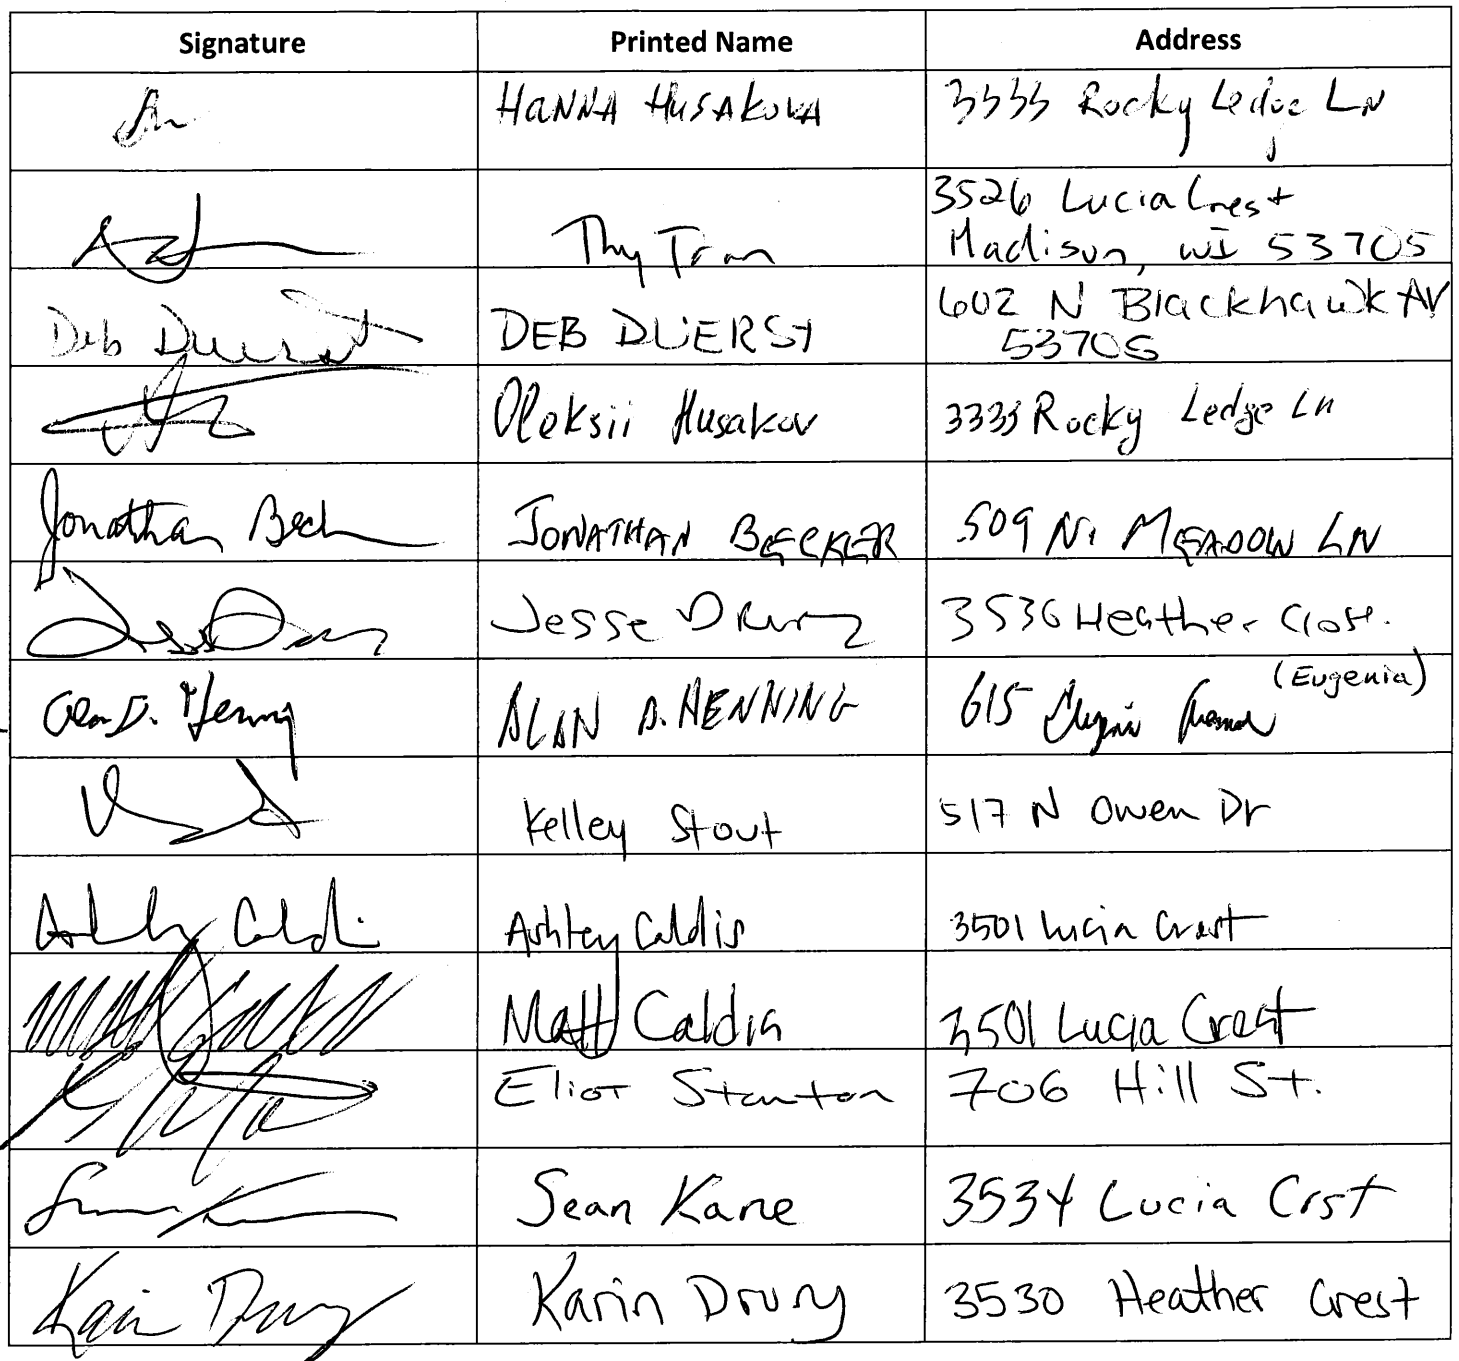 Signature Printed Name Address
HANNA HUSAKOVA 3333 Rocky Ledge LN
Thy Tran 3526 Lucia Crest
Madison, WI 53705
Deb Duerst DEB DUERST 602 N Blackhawk AV
53705
Oleksii Husakov 3333 Rocky Ledge Ln
Jonathan Beck JONATHAN BECKER 509 N. MEADOW LN
Jesse Drury 3536 Heather Crst.
Alan D. Henning ALAN D. HENNING 615 (Eugenia)
Kelley Stout 517 N Owen Dr
Ashley Caldis 3501 Lucia Crest
Matt Caldis 3501 Lucia Crest
Eliot Stanton 706 Hill St.
Sean Kane 3534 Lucia Crst
Karin Drury Karin Drury 3530 Heather Crest